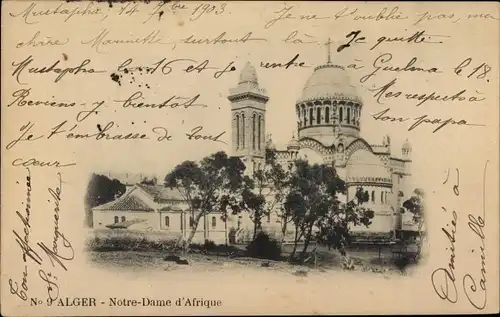 Mustapha, 14 7bre 1903
Je ne t'oublie pas, ma
chère Mariette, surtout là. Je quitte
Mustapha le 16 et je rentre à Guelma le 18.
Reviens-y bientôt
Mes respects à
Je t'embrasse de tout
ton papa.
cœur
Ton affectionné
Amitiés à
Camille
No 9 ALGER - Notre-Dame d'Afrique